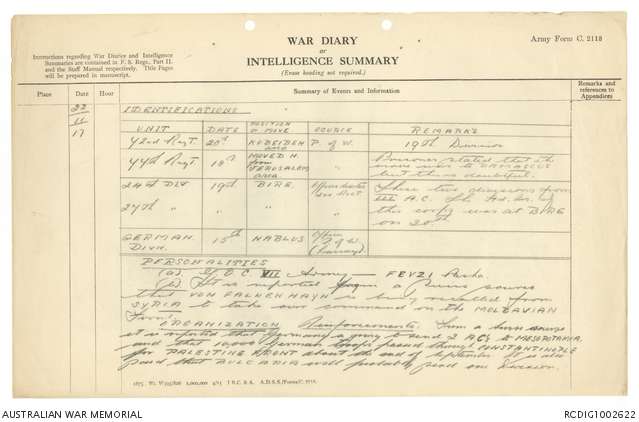 WAR DIARY
or
INTELLIGENCE SUMMARY
(Erase heading not required.)
Army Form C. 2118
Instructions regarding War Diaries and Intelligence
Summaries are contained in F. S. Regs., Part II.
and the Staff Manual respectively. Title Pages
will be prepared in manuscript.
Place Date Hour Summary of Events and Information Remarks and references to Appendices
22
11
17
IDENTIFICATIONS
UNIT DATE POSITION or MOVE SOURCE REMARKS
42nd Regt. 20th KUBEIBEH P of W. 19th Division
44th Regt. 18th MOVED N. from JERUSALEM area Prisoner stated that the move was to DAMASCUS but this doubtful.
24th DIV 19th BIRE These two divisions from
27th " " " A.C. of this corps was at BIRE on 20th
GERMAN DIVN. 15th NABLUS Officer P of W
PERSONALITIES
(a) G.O.C. VII Army — FEVZI Pasha
(b) It is reported from a source
that VON FALKENHAYN is being recalled from
SYRIA to take over command on the MOLDAVIAN
Front.
ORGANIZATION Reinforcements. From a source
it is reported that Germany is going to send 2 A.C's to MESOPOTAMIA
and that 10,000 German troops passed through CONSTANTINOPLE
for PALESTINE FRONT about the end of September. It is also
said that BULGARIA will probably send one Division.
AUSTRALIAN WAR MEMORIAL
RCDIG1002622